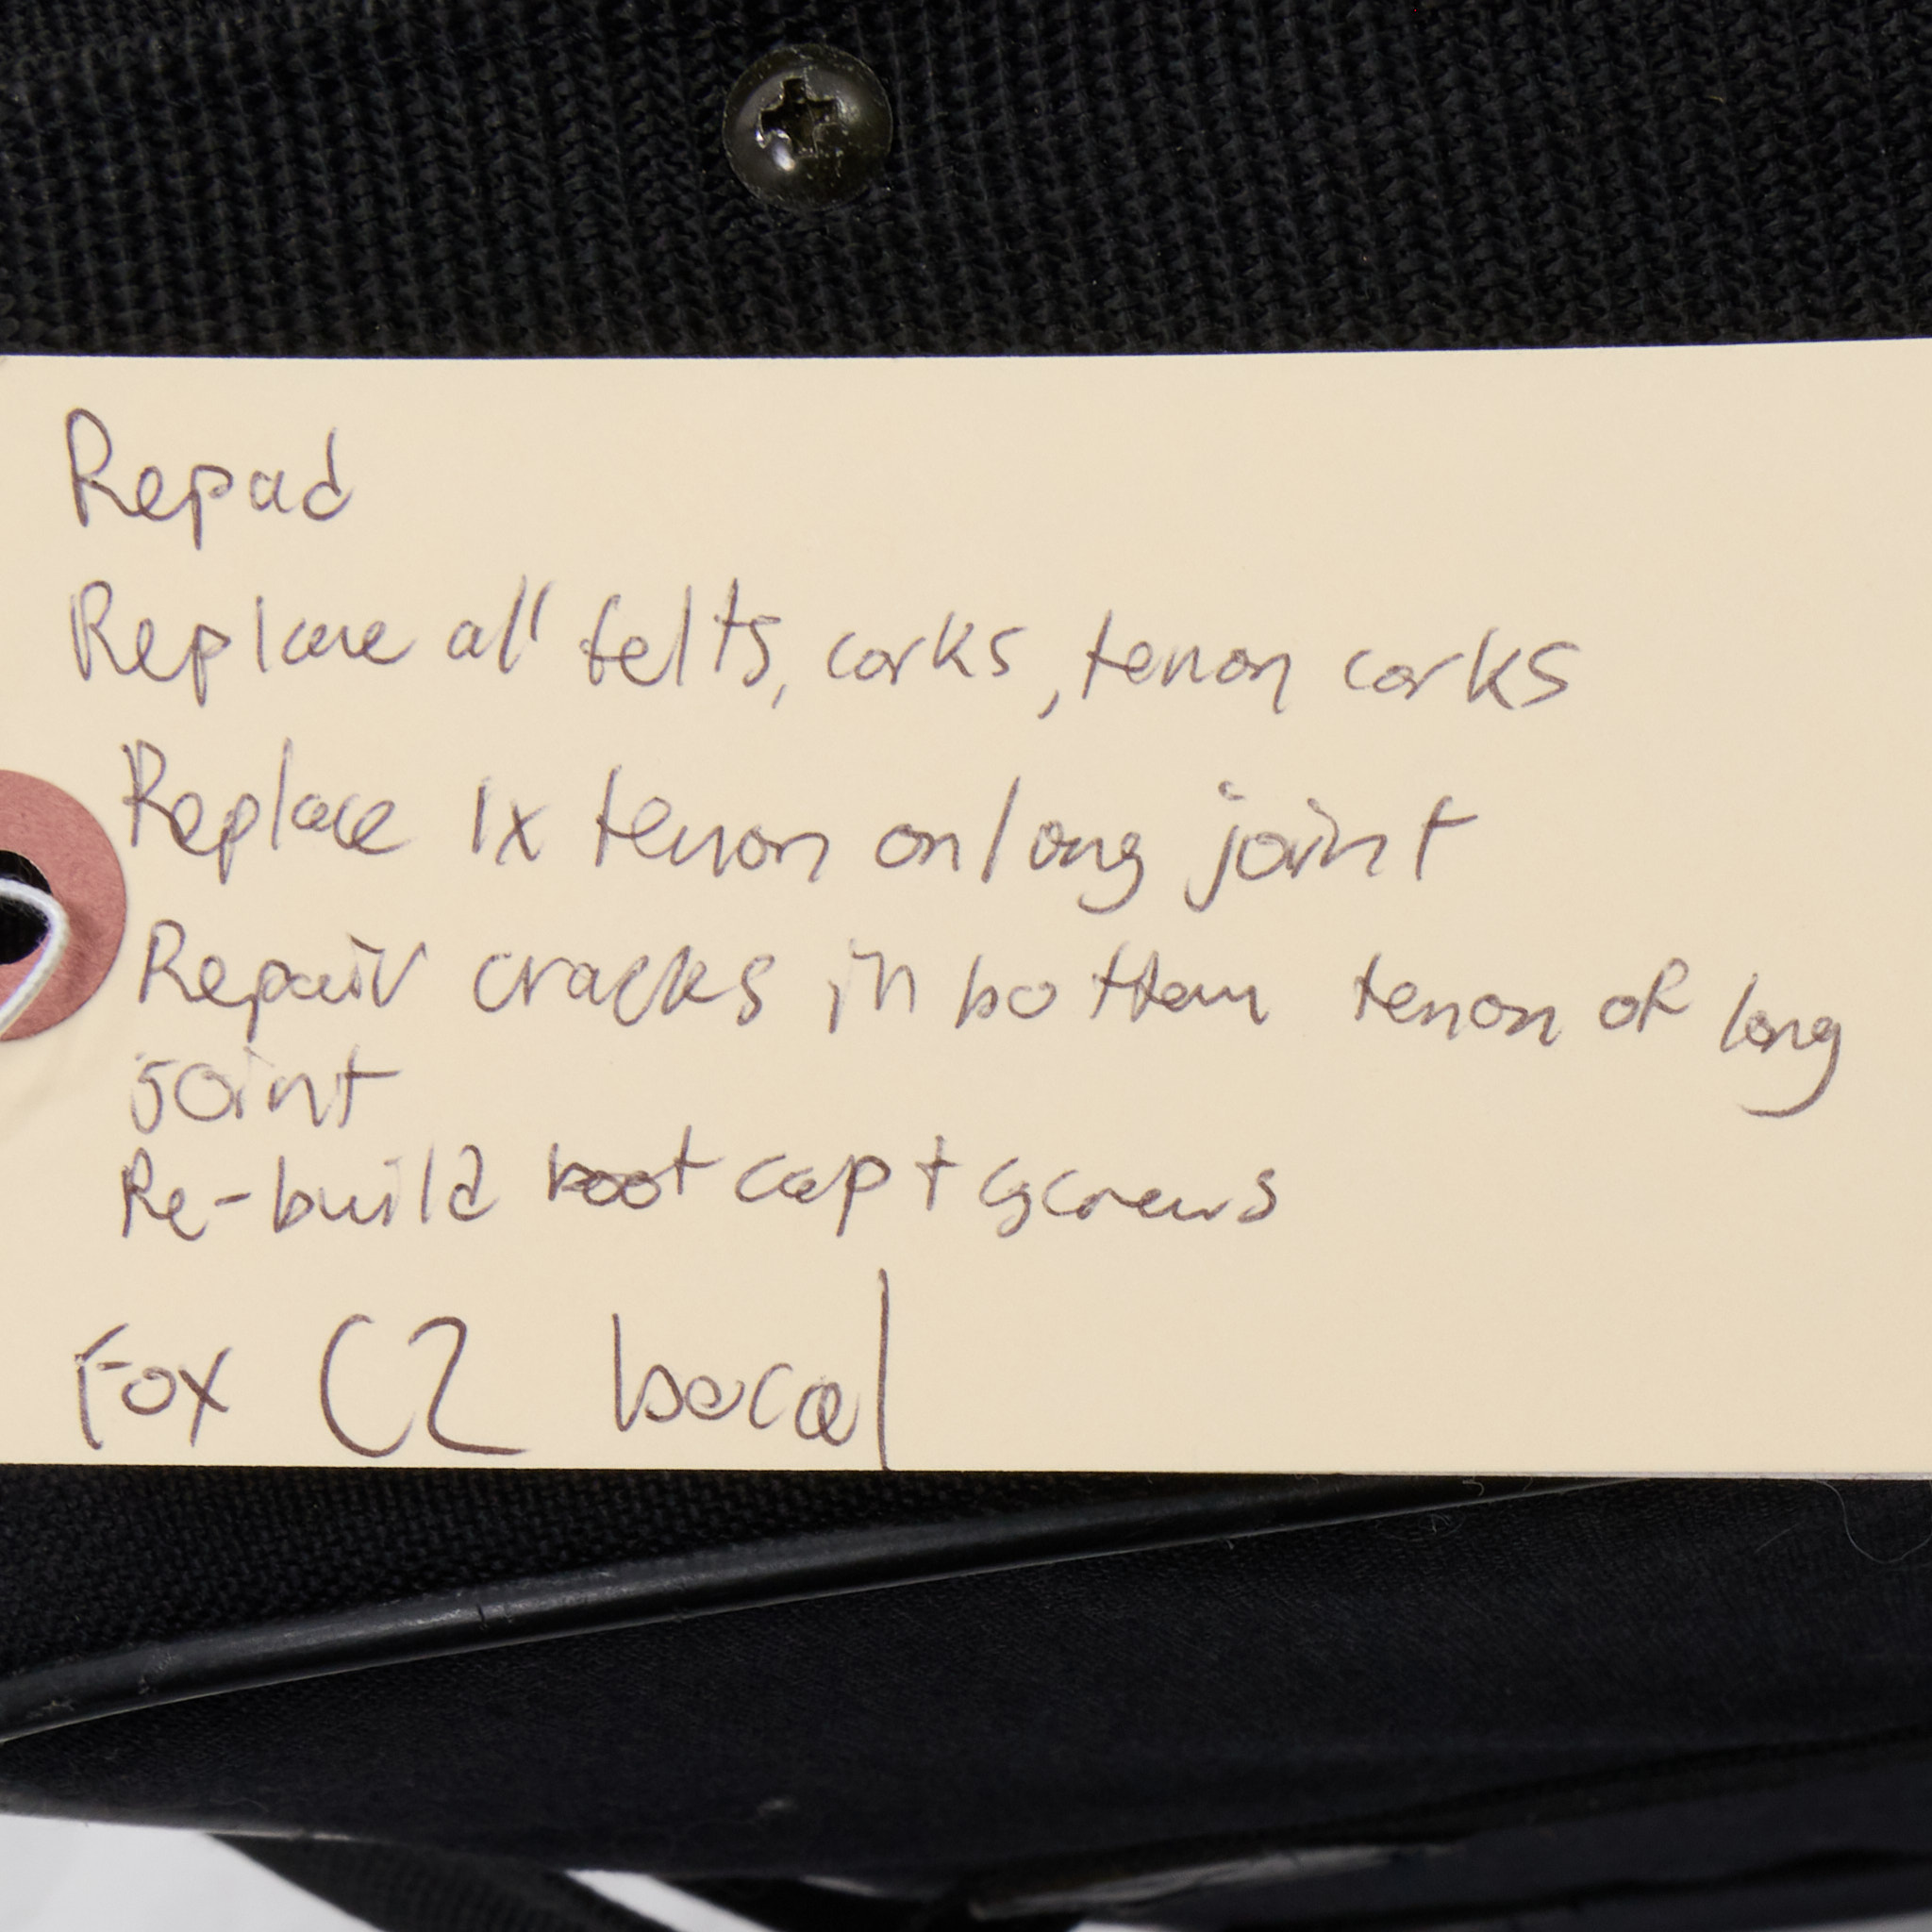 Repad
Replace all felts, corks, tenon corks
Replace 1x tenon on long joint
Repair cracks in bottom tenon of long
joint
Re-build boot cap + screws
Fox C2 bocal